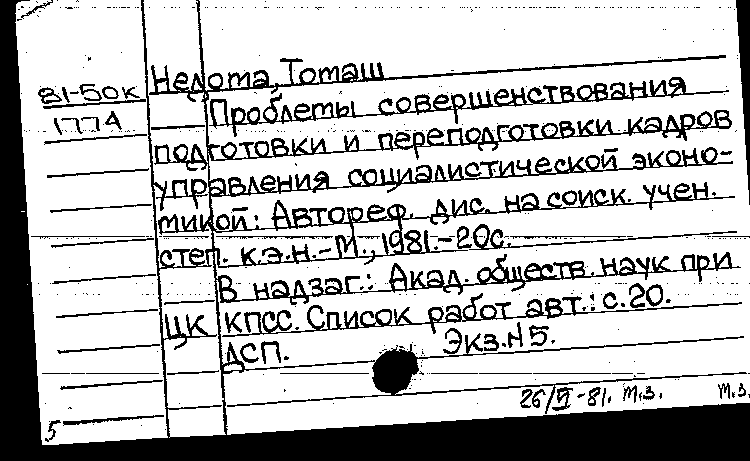 Недота, Томаш
81-50к
177А
Проблемы совершенствования
подготовки и переподготовки кадров
управления социалистической эконо-
микой: Автореф. дис. на соиск. учен.
степ. к.э.н.-М., 1981.-20с.
В надзаг.: Акад. обществ. наук при
ЦК КПСС. Список работ авт.: с.20.
ДСП. Экз.N5.
26/VI-81. т.з. т.з.
5